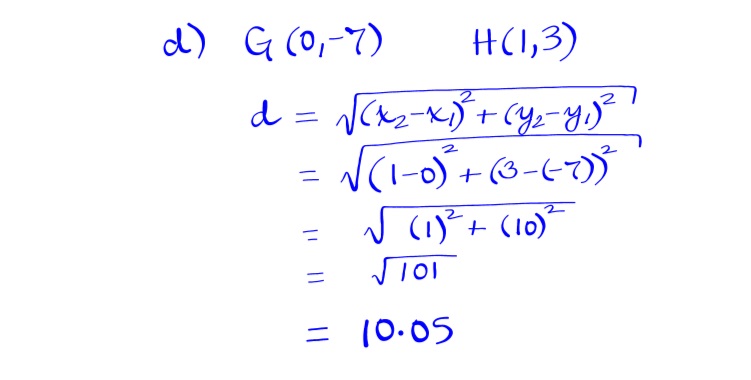 d) G(0,-7) H(1,3)
d = √(x₂-x₁)² + (y₂-y₁)²
= √(1-0)² + (3-(-7))²
= √(1)² + (10)²
= √101
= 10.05